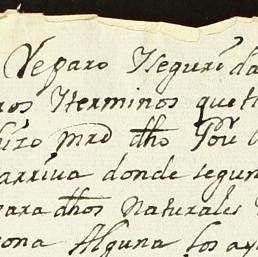 Reparo Y Seguri da
ros Y terminos que h
hizo mrd dho Gov.r
arriva donde segun
para dhos Naturales
sona Alguna los ay